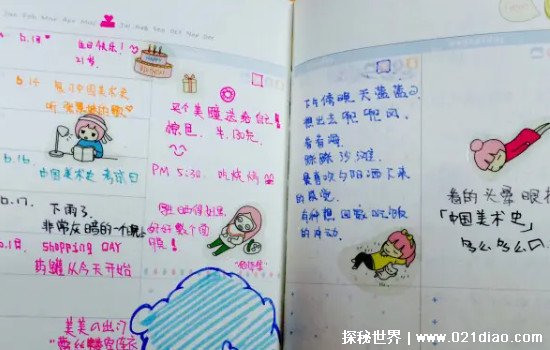 Jan Feb Mar Apr May Jun Jul Aug Sep Oct Nov Dec
6.13
生日快乐!
21岁
HAPPY BIRTHDAY
6.14 复习中国美术史
听
6.16.
中国美术史 考试日
6.17. 下雨了.
非常灰暗的一个晚上
Shopping DAY
药罐从今天开始
美美の出门
买个美瞳送给自己!
棕色. 130元.
PM 5:30. 吃烧烤
好好整个面
膜!
下午傍晚 天蓝蓝
想出去兜兜风.
看看海.
踩踩沙滩.
最喜欢夕阳洒下来
的感觉.
有种想回家吃饭
的冲动.
看的头晕眼花
「中国美术史」
多么多么
探秘世界 | www.021diao.com